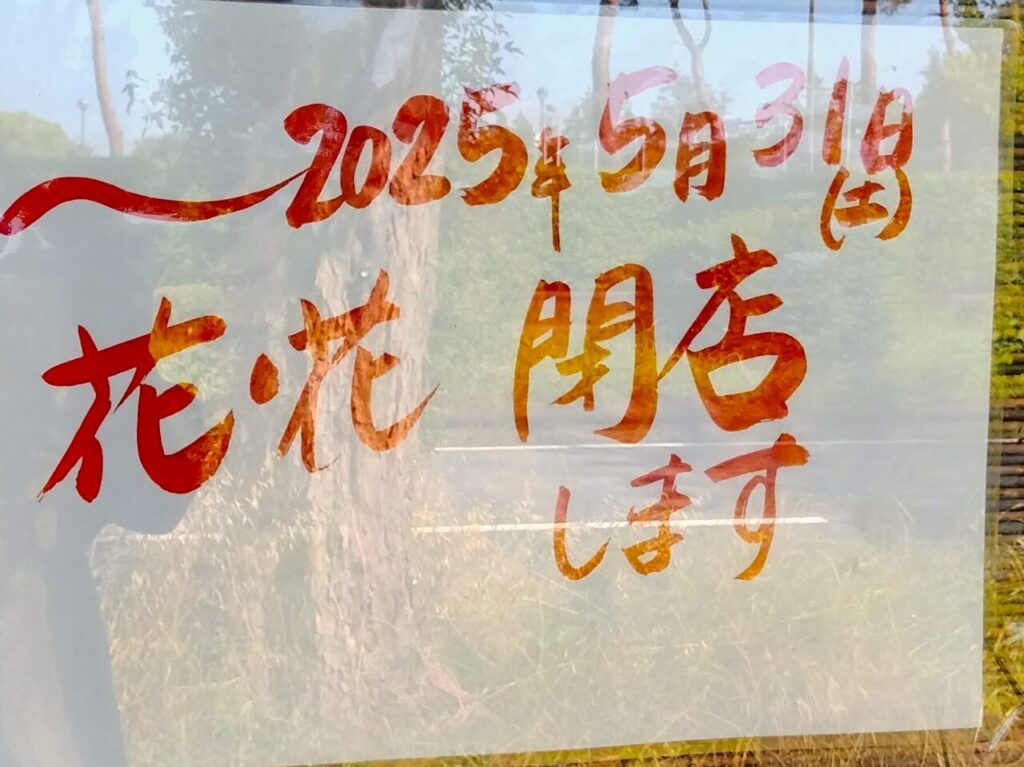 ～2025年5月31日
(土)
花・花 閉店
します